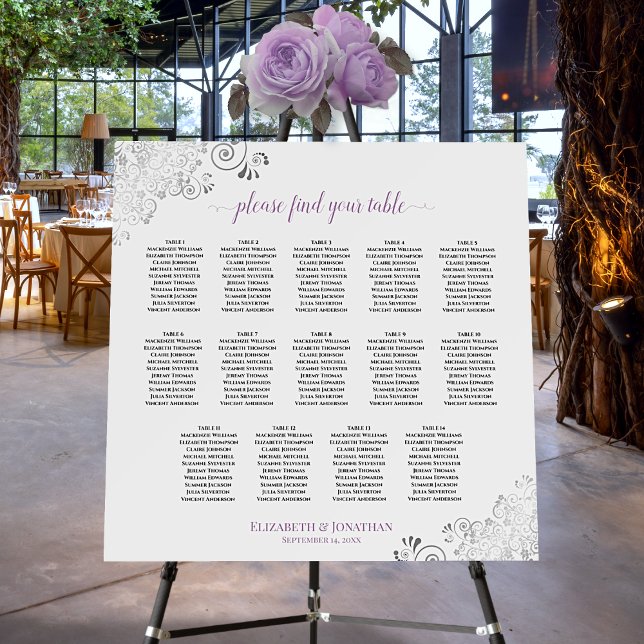 please find your table
TABLE 1
Mackenzie Williams
Elizabeth Thompson
Claire Johnson
Michael Mitchell
Suzanne Sylvester
Jeremy Thomas
William Edwards
Summer Jackson
Julia Silverton
Vincent Anderson
TABLE 2
Mackenzie Williams
Elizabeth Thompson
Claire Johnson
Michael Mitchell
Suzanne Sylvester
Jeremy Thomas
William Edwards
Summer Jackson
Julia Silverton
Vincent Anderson
TABLE 3
Mackenzie Williams
Elizabeth Thompson
Claire Johnson
Michael Mitchell
Suzanne Sylvester
Jeremy Thomas
William Edwards
Summer Jackson
Julia Silverton
Vincent Anderson
TABLE 4
Mackenzie Williams
Elizabeth Thompson
Claire Johnson
Michael Mitchell
Suzanne Sylvester
Jeremy Thomas
William Edwards
Summer Jackson
Julia Silverton
Vincent Anderson
TABLE 5
Mackenzie Williams
Elizabeth Thompson
Claire Johnson
Michael Mitchell
Suzanne Sylvester
Jeremy Thomas
William Edwards
Summer Jackson
Julia Silverton
Vincent Anderson
TABLE 6
Mackenzie Williams
Elizabeth Thompson
Claire Johnson
Michael Mitchell
Suzanne Sylvester
Jeremy Thomas
William Edwards
Summer Jackson
Julia Silverton
Vincent Anderson
TABLE 7
Mackenzie Williams
Elizabeth Thompson
Claire Johnson
Michael Mitchell
Suzanne Sylvester
Jeremy Thomas
William Edwards
Summer Jackson
Julia Silverton
Vincent Anderson
TABLE 8
Mackenzie Williams
Elizabeth Thompson
Claire Johnson
Michael Mitchell
Suzanne Sylvester
Jeremy Thomas
William Edwards
Summer Jackson
Julia Silverton
Vincent Anderson
TABLE 9
Mackenzie Williams
Elizabeth Thompson
Claire Johnson
Michael Mitchell
Suzanne Sylvester
Jeremy Thomas
William Edwards
Summer Jackson
Julia Silverton
Vincent Anderson
TABLE 10
Mackenzie Williams
Elizabeth Thompson
Claire Johnson
Michael Mitchell
Suzanne Sylvester
Jeremy Thomas
William Edwards
Summer Jackson
Julia Silverton
Vincent Anderson
TABLE 11
Mackenzie Williams
Elizabeth Thompson
Claire Johnson
Michael Mitchell
Suzanne Sylvester
Jeremy Thomas
William Edwards
Summer Jackson
Julia Silverton
Vincent Anderson
TABLE 12
Mackenzie Williams
Elizabeth Thompson
Claire Johnson
Michael Mitchell
Suzanne Sylvester
Jeremy Thomas
William Edwards
Summer Jackson
Julia Silverton
Vincent Anderson
TABLE 13
Mackenzie Williams
Elizabeth Thompson
Claire Johnson
Michael Mitchell
Suzanne Sylvester
Jeremy Thomas
William Edwards
Summer Jackson
Julia Silverton
Vincent Anderson
TABLE 14
Mackenzie Williams
Elizabeth Thompson
Claire Johnson
Michael Mitchell
Suzanne Sylvester
Jeremy Thomas
William Edwards
Summer Jackson
Julia Silverton
Vincent Anderson
Elizabeth & Jonathan
September 14, 20XX